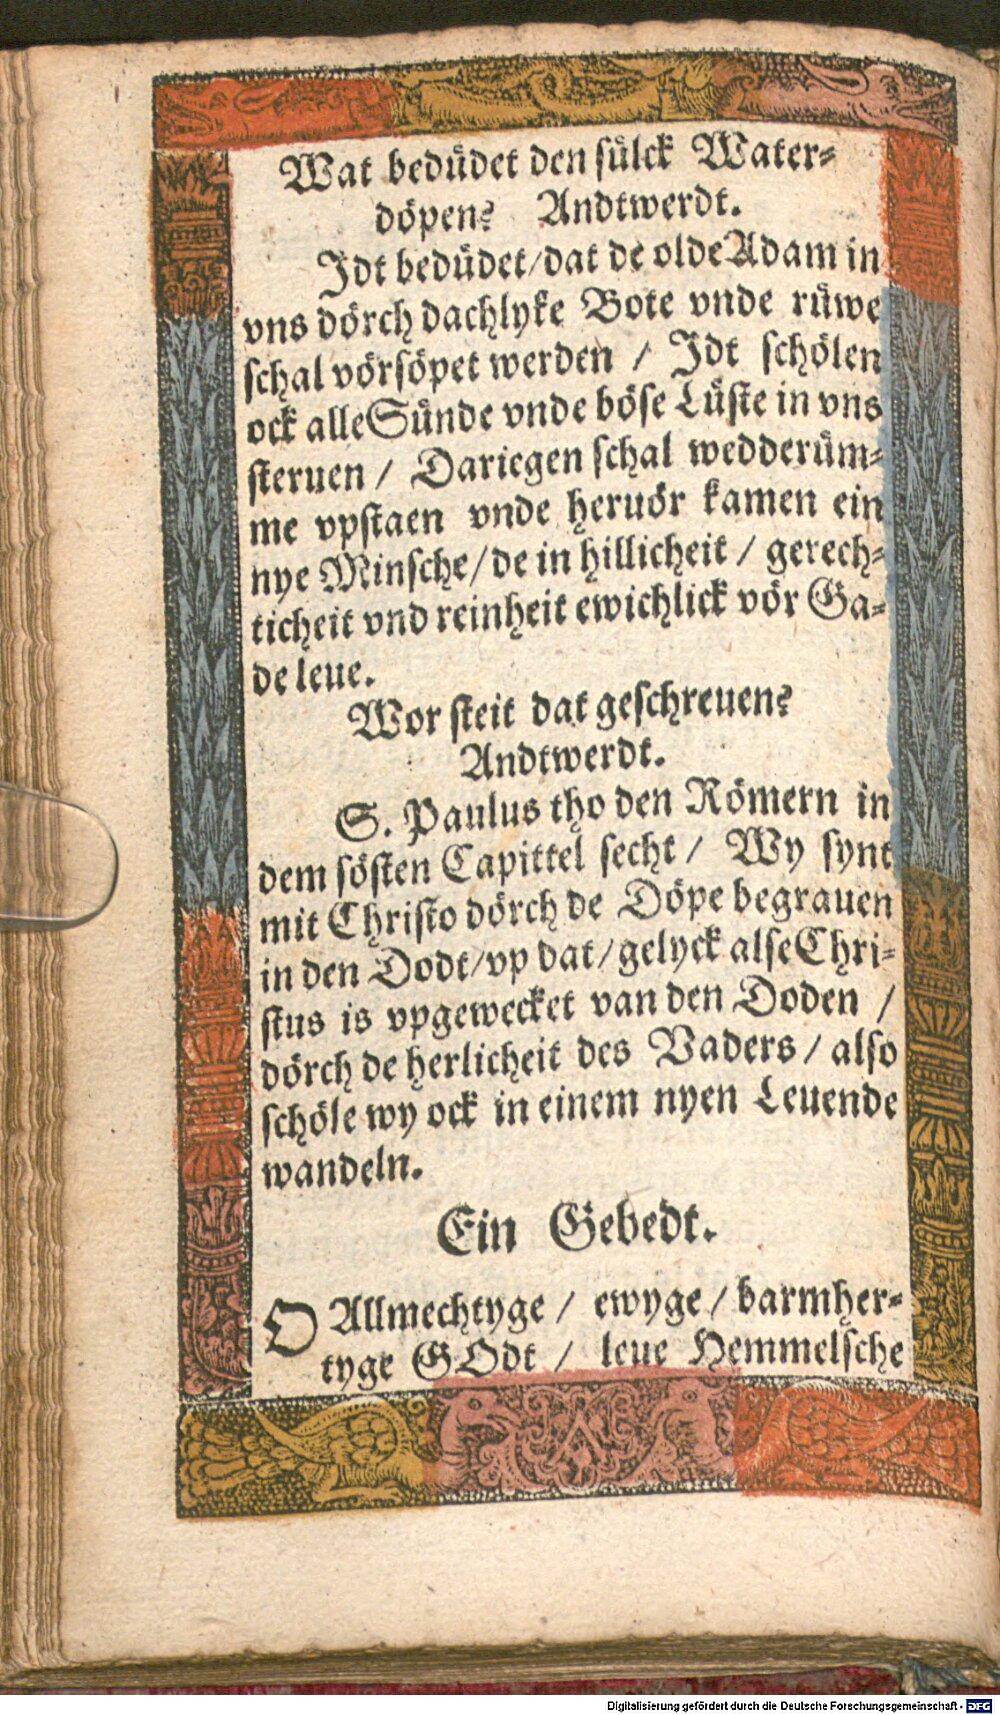 Wat bedüdet den sülck Water-
döpen? Andtwerdt.
Jdt bedüdet/dat de olde Adam in
vns dörch dachlyke Bote vnde rüwe
schal vörsöpet werden / Jdt schölen
ock alle Sünde vnde böse Lüste in vns
steruen / Dariegen schal wedderüm-
me vpstaen vnde heruör kamen ein
nye Minsche/de in hillicheit / gerech-
ticheit vnd reinheit ewichlick vör Ga-
de leue.
Wor steit dat geschreuen?
Andtwerdt.
S. Paulus tho den Römern in
dem sösten Capittel secht / Wy synt
mit Christo dörch de Döpe begrauen
in den Dodt/vp dat/gelyck alse Chri-
stus is vpgewecket van den Doden /
dörch de herlicheit des Vaders / also
schöle wy ock in einem nyen Leuende
wandeln.
Ein Gebedt.
O Allmechtyge / ewyge / barmher-
tyge GOdt / leue Hemmelsche
Digitalisierung gefördert durch die Deutsche Forschungsgemeinschaft - DFG